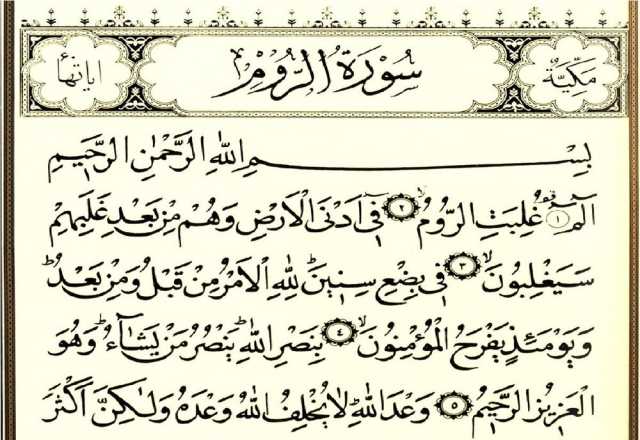 مكية
سورة الروم
اياتها
بِسْمِ اللّٰهِ الرَّحْمٰنِ الرَّحِيمِ
الٓمٓ ١ غُلِبَتِ الرُّومُ ٢ فِىٓ اَدْنَى الْاَرْضِ وَهُمْ مِنْ بَعْدِ غَلَبِهِمْ
سَيَغْلِبُونَ ٣ فِى بِضْعِ سِنِينَ لِلّٰهِ الْاَمْرُ مِنْ قَبْلُ وَمِنْ بَعْدُ
وَيَوْمَئِذٍ يَفْرَحُ الْمُؤْمِنُونَ ٤ بِنَصْرِ اللّٰهِ يَنْصُرُ مَنْ يَشَٓاءُ وَهُوَ
الْعَزِيزُ الرَّحِيمُ ٥ وَعْدَ اللّٰهِ لَا يُخْلِفُ اللّٰهُ وَعْدَهُ وَلٰكِنَّ اَكْثَرَ